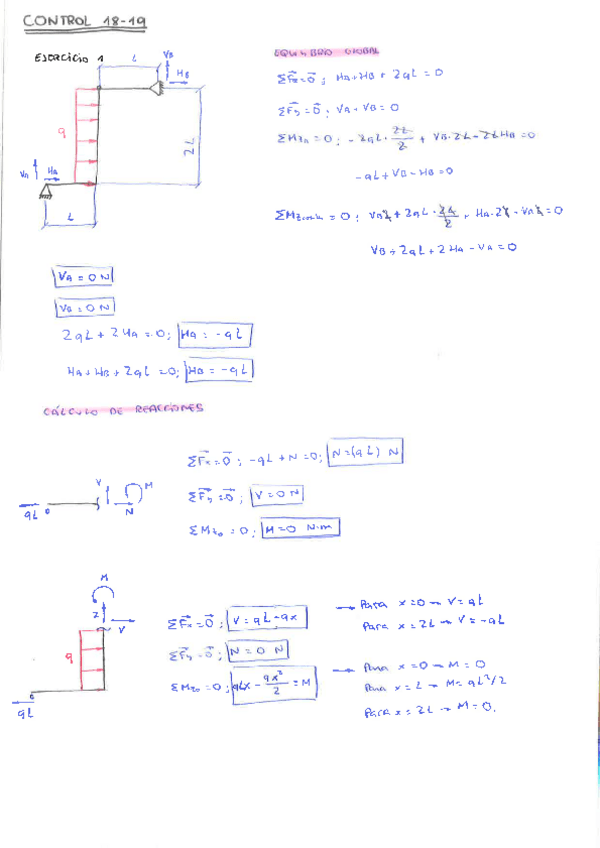 CONTROL 18-19
EJERCICIO 1
L
VB
HB
q
2L
VA
HA
L
EQUILIBRIO GLOBAL
ΣFx=0 ; HA+HB+2qL=0
ΣFy=0 ; VA+VB=0
ΣMzA=0 ; -2qL·2L/2 + VB·2L-2LHB=0
-qL+VB-HB=0
VB+2qL+2HA-VA=0
VA=0N
VB=0N
2qL+2HA=0; HA=-qL
HA+HB+2qL=0; HB=-qL
CÁLCULO DE REACCIONES
V
M
N
qL
ΣFx=0 ; -qL+N=0; N=(qL) N
ΣFy=0 ; V=0N
ΣMz0=0 ; M=0 N·m
M
V
q
qL
ΣFx=0 ; V=qL-qx
ΣFy=0 ; N=0 N
ΣMz0=0 ; qLx-qx²/2=M
→ Para x=0→V=qL
Para x=2L→V=-qL
→ Para x=0→M=0
Para x=L→M=qL²/2
Para x=2L→M=0.